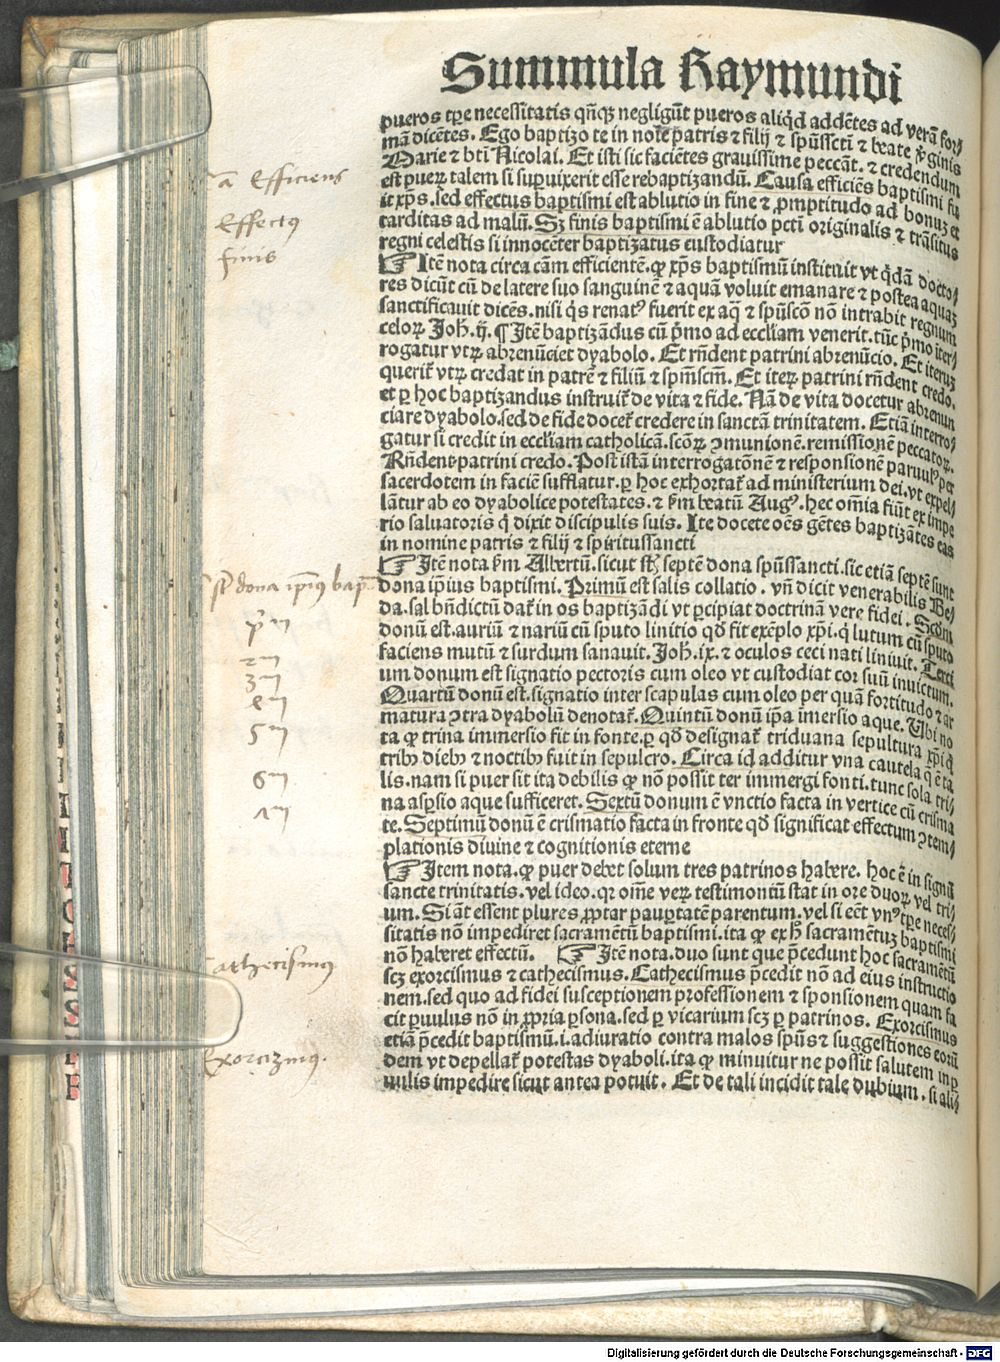 Summula Raymundi
pueros tꝑe necessitatis qñqꝫ negligūt pueros aliqd addētes ad verā for/
mā dicētes. Ego baptizo te in noīe patris ⁊ filij ⁊ spūsscti ⁊ beate ꝟginis
Marie ⁊ bti Nicolai. Et isti sic faciētes grauissime peccāt. ⁊ credendum
est pueꝝ talem si suꝑuixerit esse rebaptizandū. Causa efficiēs baptismi fu
it xp̄s. sed effectus baptismi est ablutio in fine ⁊ ꝓmptitudo ad bonuꝫ et
tarditas ad malū. Sꝫ finis baptismi ē ablutio pcti originalis ⁊ trāsitus
regni celestis si innocēter baptizatus custodiatur
☞ Itē nota circa cām efficientē. ꝙ xp̄s baptismū instituit vt q̇dā docto/
res dicūt cū de latere suo sanguinē ⁊ aquā voluit emanare ⁊ postea aquaꝫ
sanctificauit dicēs. nisi q̇s renatꝰ fuerit ex aq̄ ⁊ spūscō nō intrabit regnum
celoꝝ Joh̄. iij. ¶ Itē baptizādus cū p̄mo ad eccliam venerit. tūc p̄mo iter/
rogatur vtꝝ abrenūciet dyabolo. Et rn̄dent patrini abrenūcio. Et iteruꝫ
querit̄ vtꝝ credat in patrē ⁊ filiū ⁊ spm̄scm̄. Et iteꝝ patrini rn̄dent credo.
et ꝑ hoc baptizandus instruit̄ de vita ⁊ fide. Nā de vita docetur abrenun
ciare dyabolo. sed de fide docet̄ credere in sanctā trinitatem. Etiā interro/
gatur si credit in eccliam catholicā. scōꝝ ꝯmunionē. remissionē peccatoꝝ.
Rn̄dent patrini credo. Post istā interrogatōnē ⁊ responsionē paruulꝰ per
sacerdotem in faciē sufflatur. ꝑ hoc exhortat̄ ad ministerium dei. vt expel/
lātur ab eo dyabolice potestates. ⁊ ẜm beatū Augꝰ. hec om̄ia fiūt ex impe
rio saluatoris q̇ dixit discipulis suis. Ite docete oēs gētes baptizātes eas
in nomine patris ⁊ filij ⁊ spiritussancti
☞ Itē nota ẜm Albertū. sicut st̄ septē dona spūssancti. sic etiā septē sunt
dona ip̄ius baptismi. Primū est salis collatio. vn̄ dicit venerabilis Be/
da. sal bn̄dictū dat̄ in os baptizādi vt ꝑcipiat doctrinā vere fidei. Scdm̄
donū est. auriū ⁊ nariū cū sputo linitio qd̄ fit exēplo xp̄i. q̇ lutum cū sputo
faciens mutū ⁊ surdum sanauit. Joh̄. ix. ⁊ oculos ceci nati liniuit. Terci
um donum est signatio pectoris cum oleo vt custodiat cor suū inuictum.
Quartū donū est. signatio inter scapulas cum oleo per quā fortitudo ⁊ ar
matura ꝯtra dyabolū denotat̄. Quintū donū ip̄a imersio aque. Vbi no
ta ꝙ trina immersio fit in fonte. ꝑ qd̄ designat̄ triduana sepultura xp̄i q̇
tribꝰ diebꝰ ⁊ noctibꝰ fuit in sepulcro. Circa id additur vna cautela q̄ ē ta
lis. nam si puer sit ita debilis ꝙ nō possit ter immergi fonti. tunc sola tri/
na asꝑsio aque sufficeret. Sextū donum ē vnctio facta in vertice cū crisma
te. Septimū donū ē crismatio facta in fronte qd̄ significat effectum ꝯtem/
plationis diuine ⁊ cognitionis eterne
☞ Item nota. ꝙ puer debet solum tres patrinos habere. hoc ē in signū
sancte trinitatis. vel ideo. qꝛ om̄e veꝝ testimoniū stat in ore duoꝝ vel tri/
um. Si āt essent plures ꝓptar pauꝑtatē parentum. vel si eēt vnꝰ tꝑe neces/
sitatis nō impediret sacramētū baptismi. ita ꝙ ex h̄ sacramētuꝫ baptismi
nō haberet effectū. ☞ Itē nota. duo sunt que p̄cedunt hoc sacramētū
scꝫ exorcismus ⁊ cathecismus. Cathecismus p̄cedit nō ad eius instructio
nem. sed quo ad fidei susceptionem professionem ⁊ sponsionem quam fa
cit ꝑuulus nō in ꝓpria ꝑsona. sed ꝑ vicarium scꝫ ꝑ patrinos. Exorcismus
etiā p̄cedit baptismū. i. adiuratio contra malos spūs ⁊ suggestiones eorū
dem vt depellat̄ potestas dyaboli. ita ꝙ minuitur ne possit salutem in ꝑ
uulis impedire sicut antea potuit. Et de tali incidit tale dubium. si aliꝰ
cā Efficiens
Effectus
finis
dona ip̄ius bap
pm
2m
3m
4m
5m
6m
7m
Cathecismus
Exorcizmus.
Digitalisierung gefördert durch die Deutsche Forschungsgemeinschaft - DFG